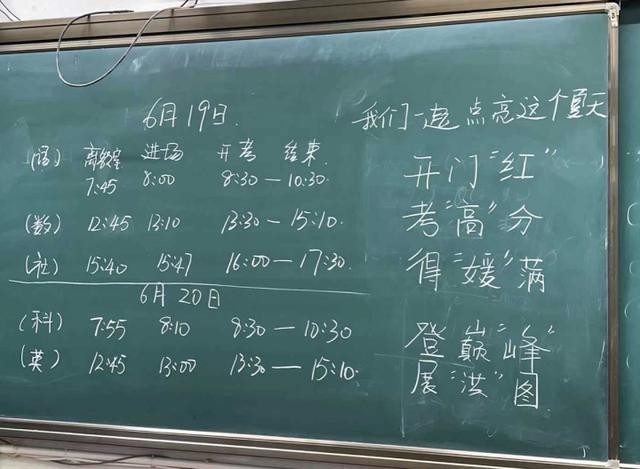 6月19日.
(语) 离教室 进场 开考 结束
7:45 8:00 8:30—10:30.
(数) 12:45 13:10 13:30—15:10.
(社) 15:40 15:47 16:00—17:30.
6月20日
(科) 7:55 8:10 8:30—10:30
(英) 12:45 13:00 13:30—15:10.
我们一起点亮这个夏天
开门"红"
考"高"分
得"媛"满
登巅"峰"
展"洪"图